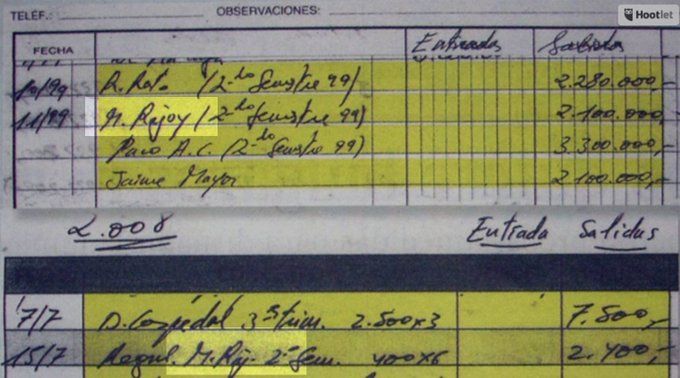 Hootlet
TELÉF.: OBSERVACIONES:
FECHA Entradas Salidas
10/99 R. Rato (2º Semestre 99) 2.280.000,-
11/99 M. Rajoy (2º Semestre 99) 2.100.000,-
Paco A.C. (2º Semestre 99) 3.300.000,-
Jaime Mayor 2.100.000,-
2.008 Entrada Salidas
17/7 D. Cospedal 3º trim. 2.500x3 7.500,-
15/7 M. Raj. 2º Sem. 400x6 2.400,-